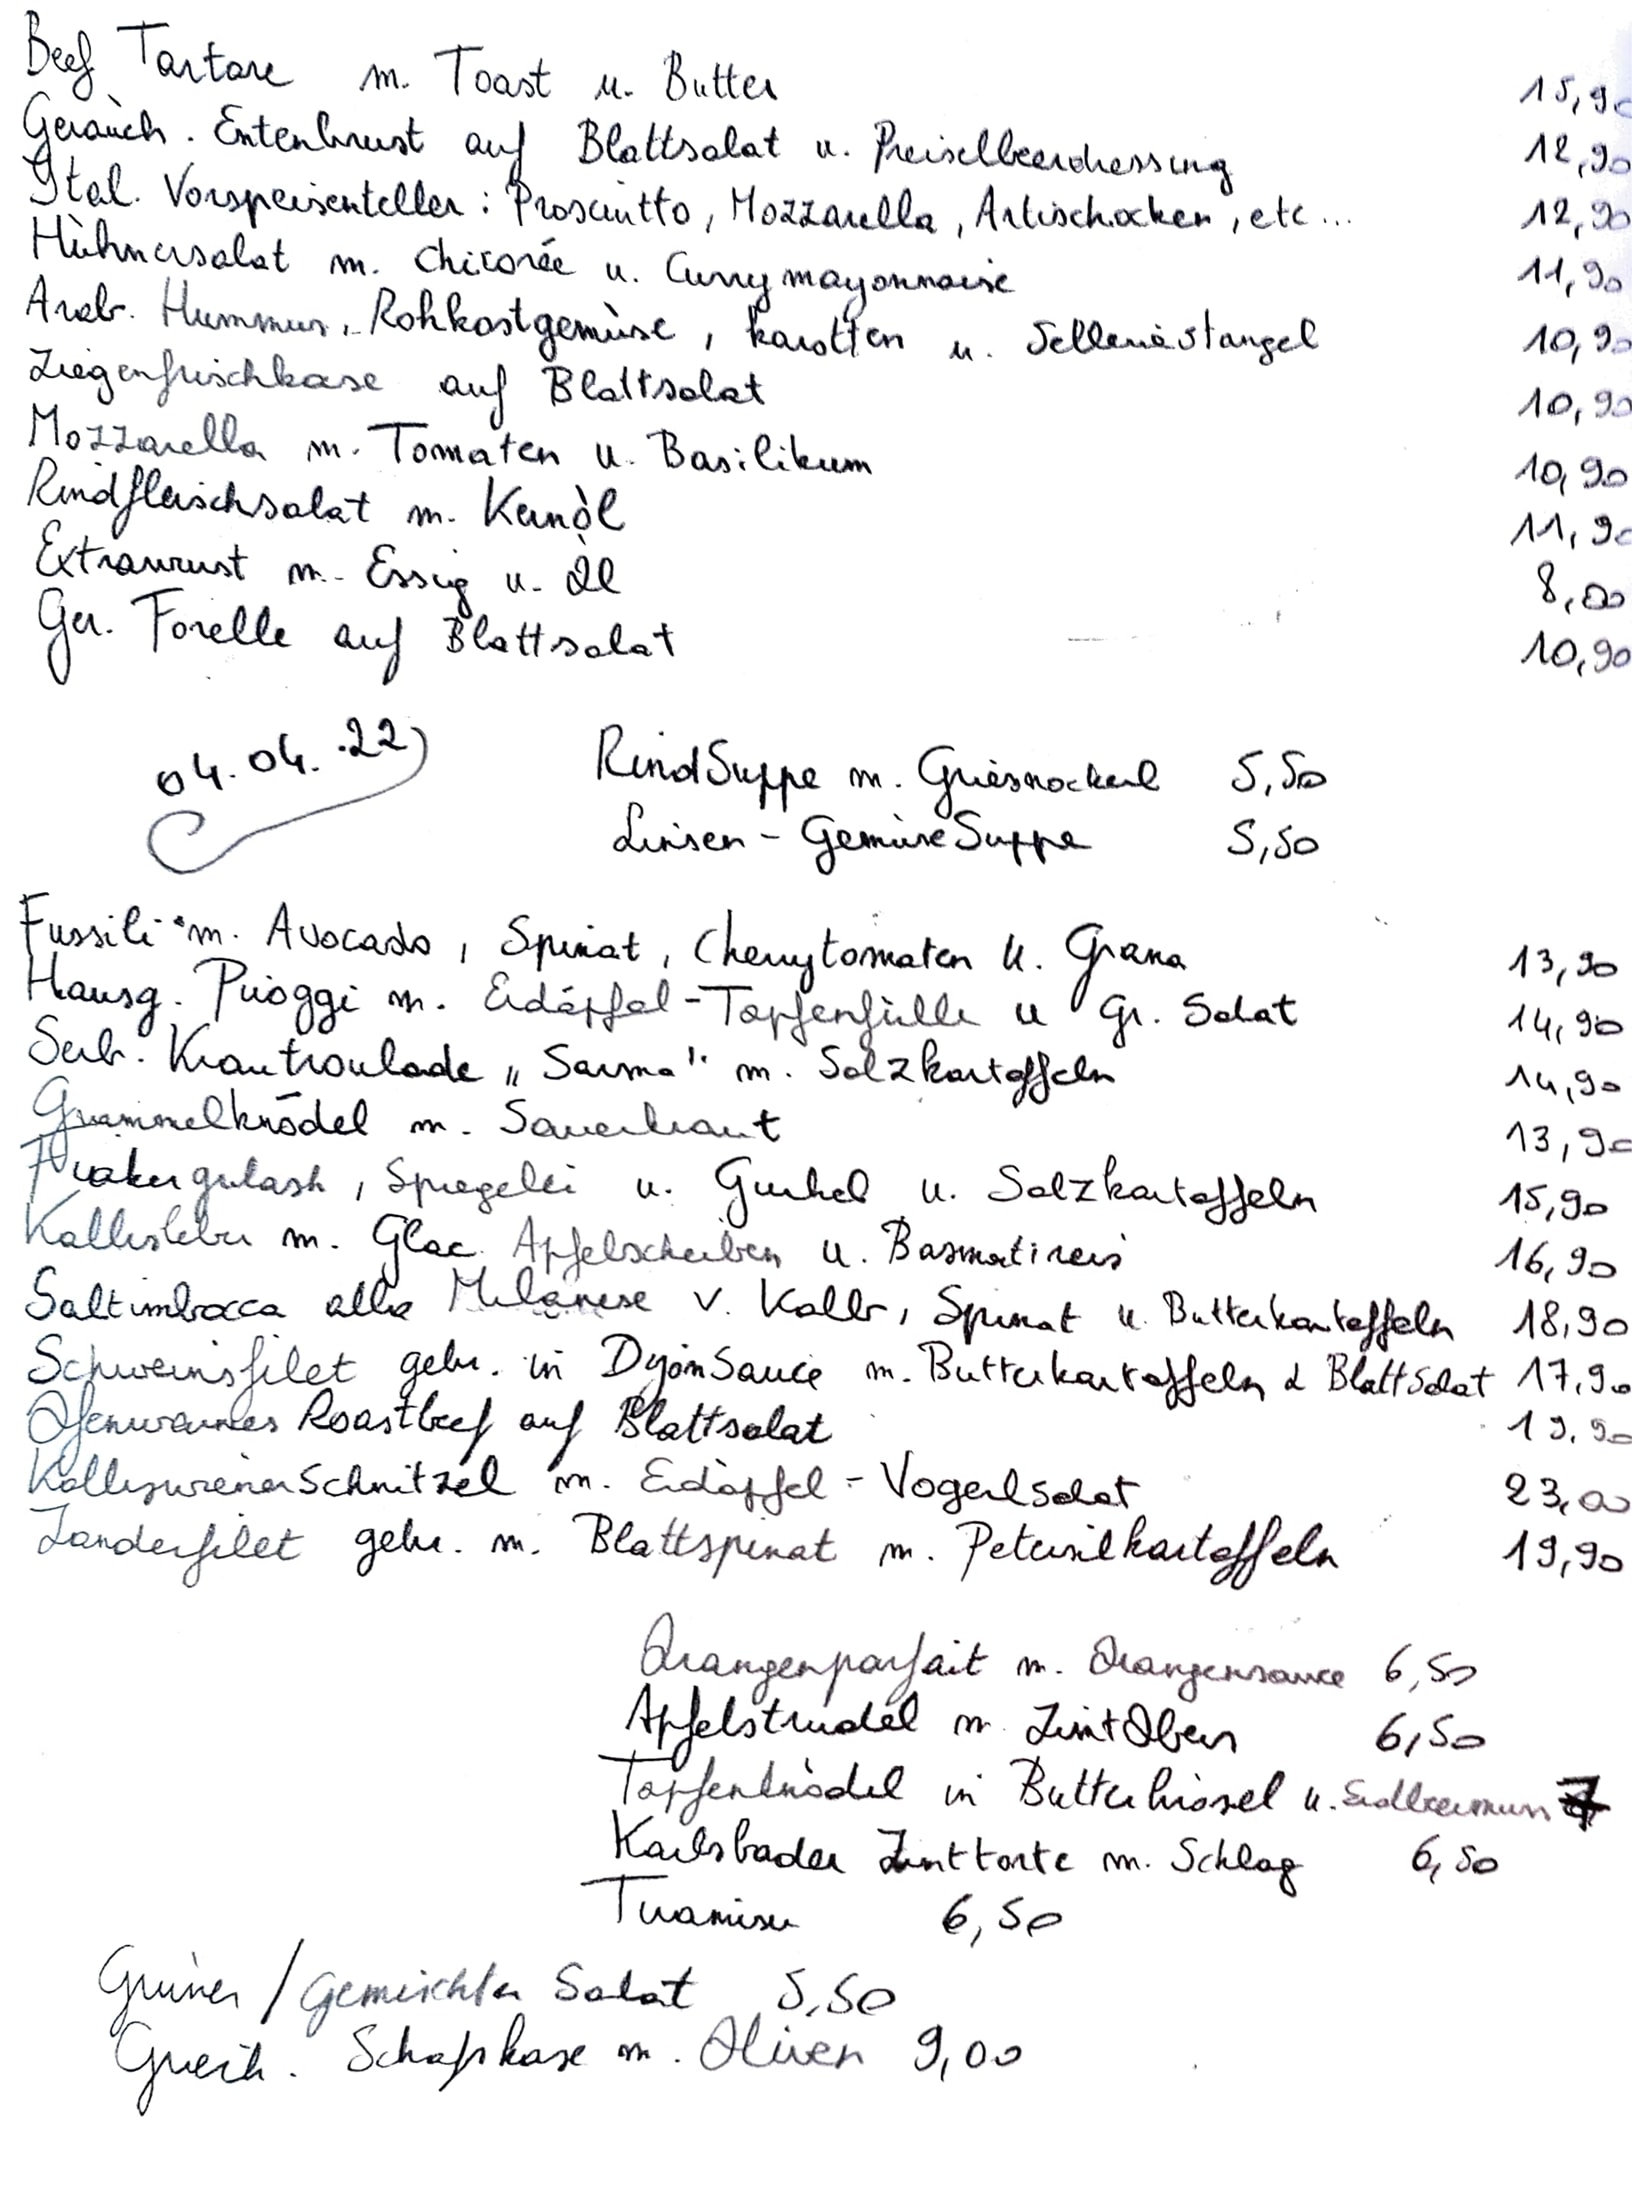 Beef Tartare m. Toast u. Butter 15,90
Geräuch. Entenbrust auf Blattsalat u. Preiselbeerdressing 12,90
Ital. Vorspeisenteller: Prosciutto, Mozzarella, Artischocken, etc... 12,90
Hühnersalat m. Chicorée u. Currymayonnaise 11,90
Arab. Hummus, Rohkostgemüse, karotten u. Selleriestangel 10,90
Ziegenfrischkäse auf Blattsalat 10,90
Mozzarella m. Tomaten u. Basilikum 10,90
Rindfleischsalat m. Kernöl 11,90
Extrawurst m. Essig u. Öl 8,00
Ger. Forelle auf Blattsalat 10,90
04.04.22
RindSuppe m. Griesnockerl 5,50
Linsen-GemüseSuppe 5,50
Fussili m. Avocado, Spinat, Cherrytomaten u. Grana 13,90
Hausg. Piroggi m. Erdäpfel-Topfenfülle u Gr. Salat 14,90
Serb. Krautroulade „Sarma" m. Salzkartoffeln 14,90
Grammelknödel m. Sauerkraut 13,90
Fiakergulash, Spiegelei u. Gurkel u. Salzkartoffeln 15,90
Kalbsleber m. Glac. Apfelscheiben u. Basmatireis 16,90
Saltimbocca alla Milanese v. Kalb, Spinat u. Butterkartoffeln 18,90
Schweinsfilet gebr. in DyjonSauce m. Butterkartoffeln & BlattSalat 17,90
Ofenwarmes Roastbeef auf Blattsalat 19,90
KalbswienerSchnitzel m. Erdäpfel-Vogerlsalat 23,00
Zanderfilet gebr. m. Blattspinat m. Petersilkartoffeln 19,90
Orangenparfait m. Orangensauce 6,50
Apfelstrudel m. ZimtObers 6,50
Topfenknödel in Butterbrösel u. Erdbeermus 7
Karlsbader Zimttorte m. Schlag 6,50
Tiramisu 6,50
Grüner / Gemischter Salat 5,50
Griech. Schafskäse m. Oliven 9,00